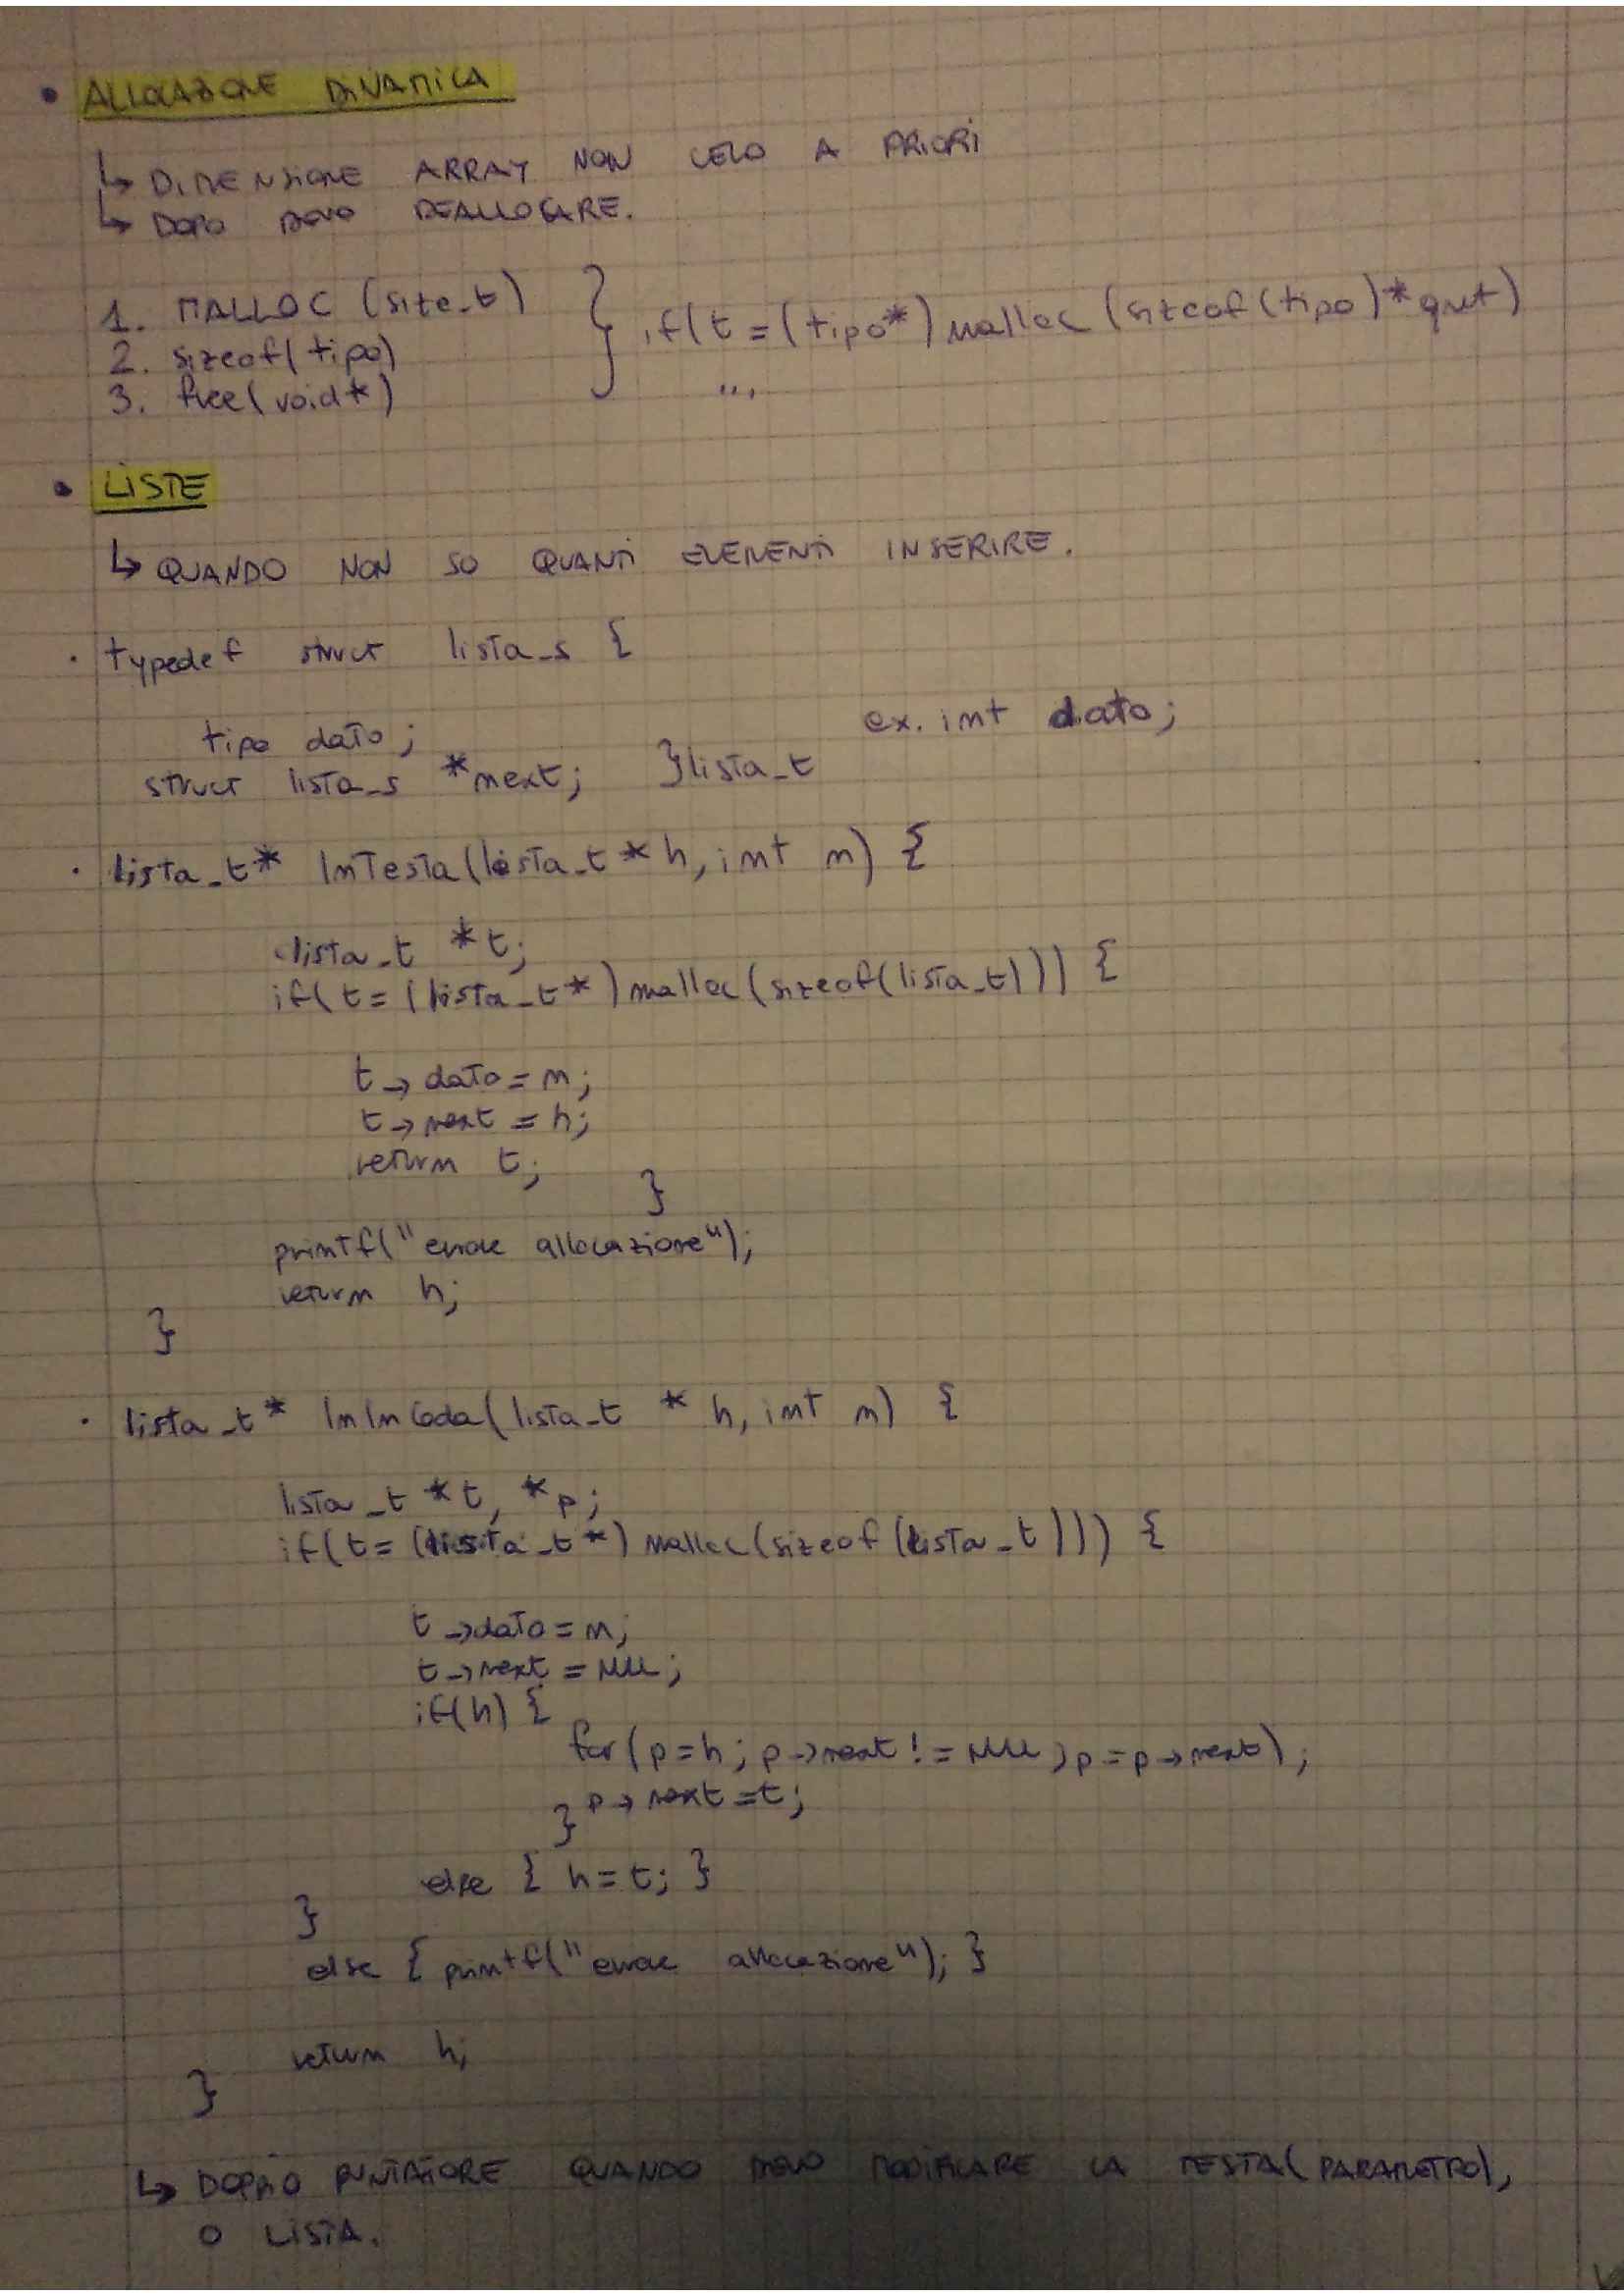 • ALLOCAZIONE DINAMICA
↳ DIMENSIONE ARRAY NON CE L'HO A PRIORI
↳ DOPO DEVO DEALLOCARE.
1. MALLOC (size_t)
2. sizeof(tipo)
3. free(void*)
} if(t=(tipo*)malloc(sizeof(tipo)*qnt)
...
• LISTE
↳ QUANDO NON SO QUANTI ELEMENTI INSERIRE.
· typedef struct lista_s {
tipo dato; ex. int dato;
struct lista_s *next; }lista_t
· lista_t* InTesta(lista_t * h, int n) {
lista_t *t;
if(t=(lista_t*)malloc(sizeof(lista_t))) {
t->dato=n;
t->next=h;
return t;
}
printf("errore allocazione");
return h;
}
· lista_t* InInCoda(lista_t * h, int n) {
lista_t *t, *p;
if(t=(lista_t*)malloc(sizeof(lista_t))) {
t->dato=n;
t->next=NULL;
if(h) {
for(p=h; p->next!=NULL; p=p->next);
p->next=t;
}
else { h=t; }
}
else { printf("errore allocazione"); }
return h;
}
↳ DOPPIO PUNTATORE QUANDO DEVO MODIFICARE LA TESTA(PARAMETRO),
O LISTA.